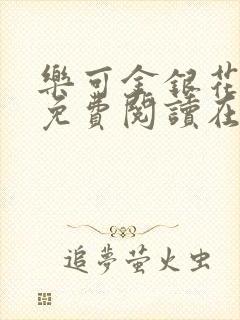 樂可金銀花
免費閱讀在
追夢萤火虫